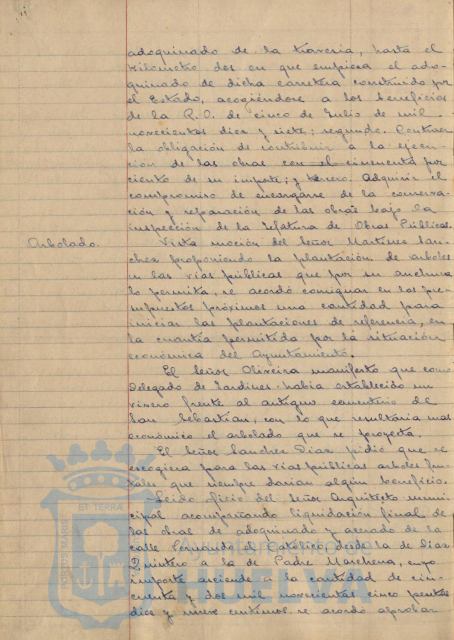 adoquinado de la travesia, hasta el
kilometro dos en que empieza el ado-
quinado de dicha carretera construido por
el Estado, acogiéndose a los beneficios
de la R.O. de cinco de Julio de mil
novecientos diez y siete; segundo. Contraer
la obligación de contribuir a la ejecu-
cion de las obras con el cincuenta por
ciento de su importe; y tercero. Adquirir el
compromiso de encargarse de la conserva-
ción y reparación de las obras bajo la
inspección de la Jefatura de Obras Públicas.
Arbolado.
Vista moción del Señor Martinez San-
chez proponiendo la plantación de arboles
en las vias públicas que por su anchura
lo permita, se acordó consignar en los pre-
supuestos próximos una cantidad para
iniciar las plantaciones de referencia, en
la cuantia permitida por la situación
económica del Ayuntamiento.
El Señor Oliveira manifestó que como
Delegado de Jardines habia establecido un
vivero frente al antiguo cementerio de
San Sebastián, con lo que resultaria mas
económico el arbolado que se proyecta.
El Señor Sanchez Diaz pidió que se
escogiera para las vias públicas arboles fru-
tales que siempre darian algún beneficio.
Leido oficio del Señor Arquitecto muni-
cipal acompañando liquidación final de
las obras de adoquinado y acerado de la
calle Fernando el Católico, desde la de Diaz
Quintero a la de Padre Marchena, cuyo
importe asciende a la cantidad de cin-
cuenta y dos mil novecientas cinco pesetas
diez y nueve centimos, se acordó aprobar